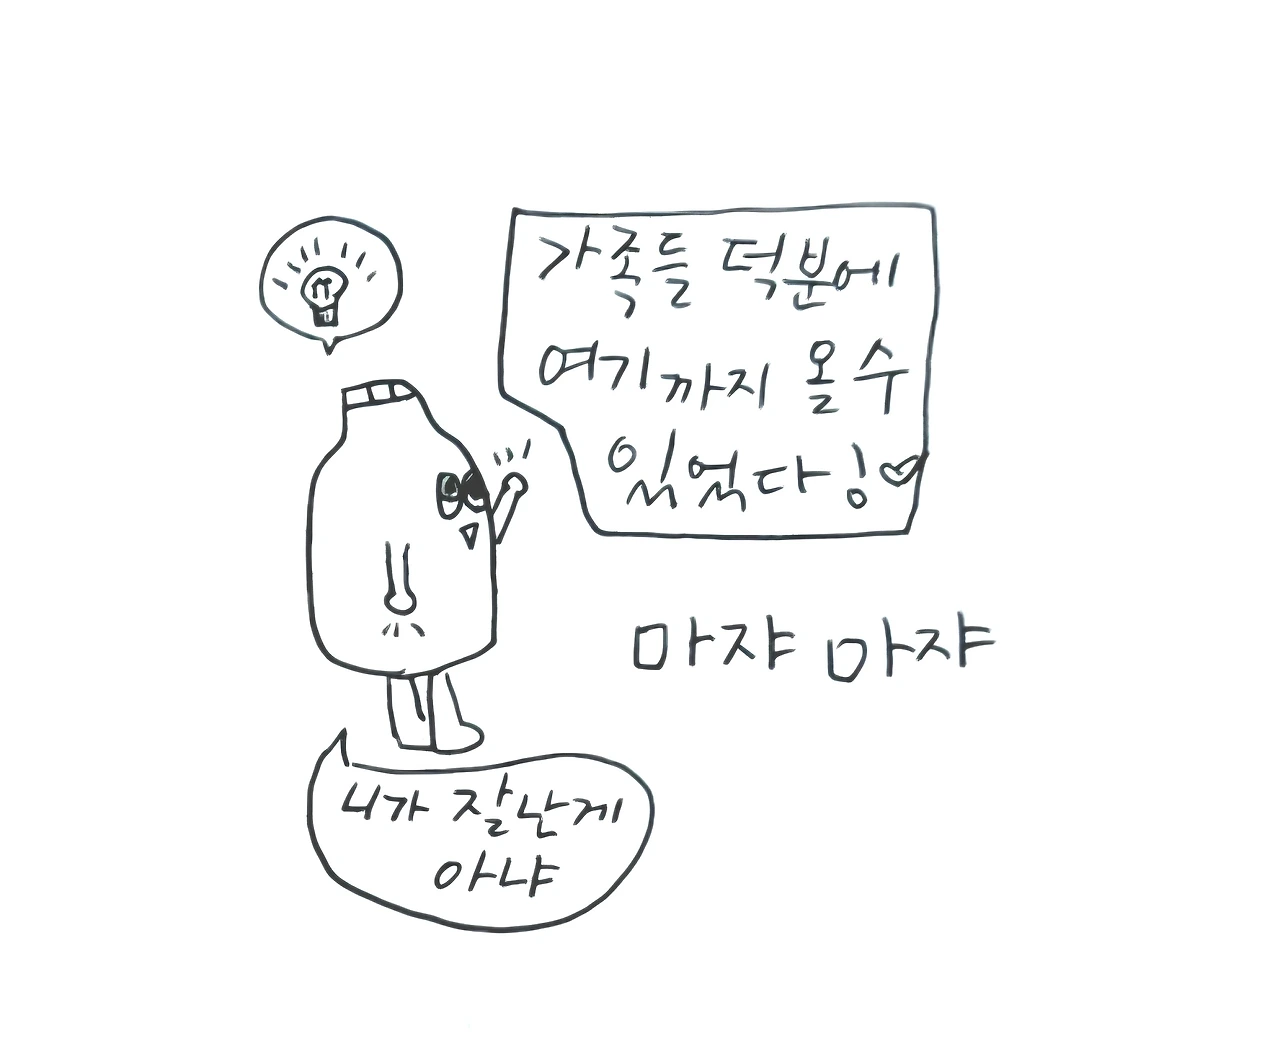 가족들 덕분에
여기까지 올수
있었다!♡
마쟈 마쟈
니가 잘난게
아냐